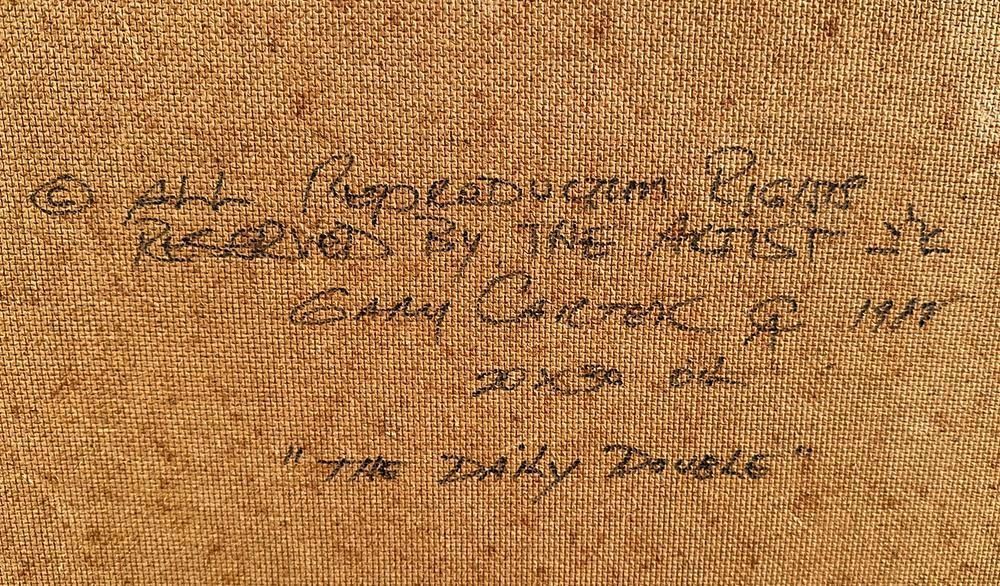 © ALL REPRODUCTION RIGHTS
RESERVED BY THE ARTIST
GARY CARTER CA
20 X 30 OIL
"THE DAILY DOUBLE"